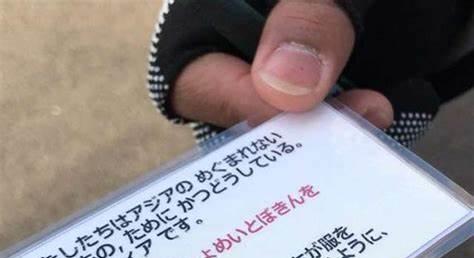 たしたちはアジアの めぐまれない
の, ために かつどうしている。
ィア です。
よめいとぼきんを
が服を
ように、